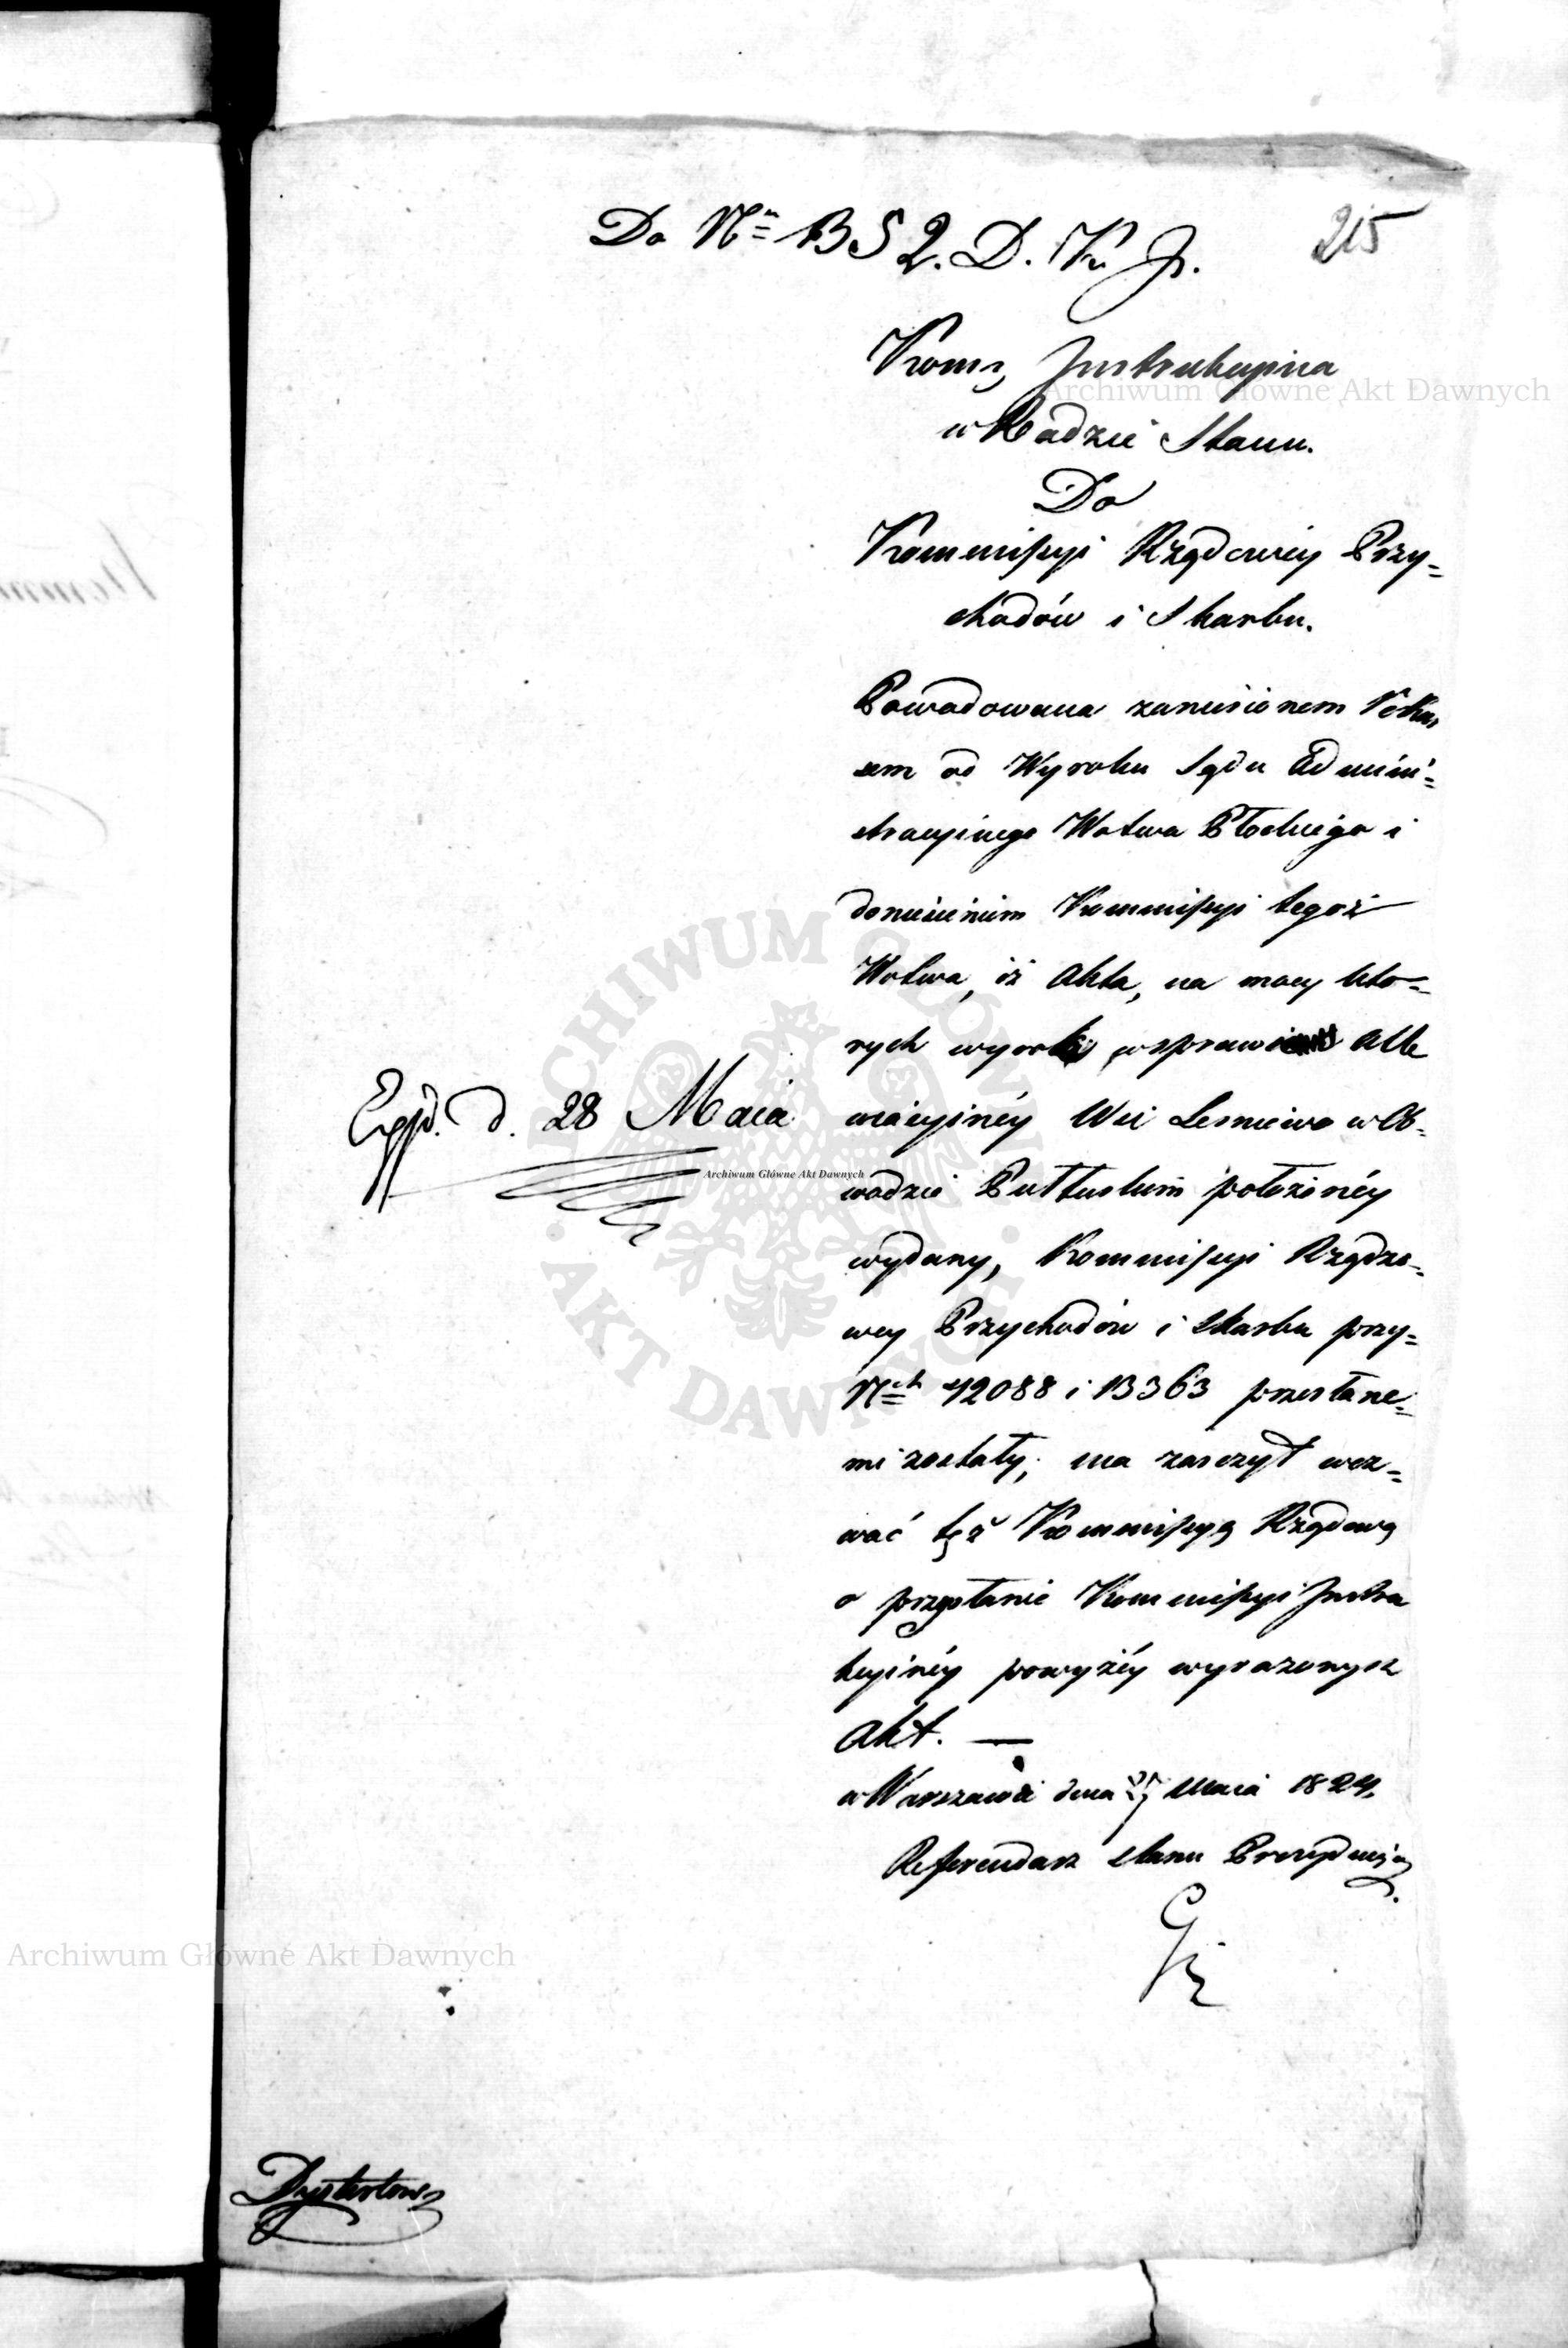 Do Nru 1352. D. K. J.
215
Komis. Instrukcyina
w Radzie Stanu.
Do
Kommissyi Rządowey Przy=
chodów i Skarbu.
Powodowana zaniesionem Rekur
sem od Wyroku Sądu Admini=
stracyinego Wotwa Płockiego i
doniesieniem Kommissyi tegoż
Wotwa, iż Akta, na mocy któ=
rych wyrok w sprawie Alle
wiacyinéy Wsi Lesniewo w Ob=
wodzie Pułtuskim położonéy
Expd. d. 28 Maia
wydany, Kommissyi Rządo=
wey Przychodów i Skarbu przy=
Nch 12088 i 13363 przesłane=
mi zostały; ma zaszczyt wez=
wać też Kommissyą Rządową
o przesłanie Kommissyi Instru
kcyinéy powyżéy wyrazonych
Akt. —
w Warszawie dnia 27 Maia 1824.
Referendarz Stanu Prezyduiący.
Archiwum Główne Akt Dawnych
Archiwum Główne Akt Dawnych
Archiwum Główne Akt Dawnych
ARCHIWUM GŁÓWNE
AKT DAWNYCH